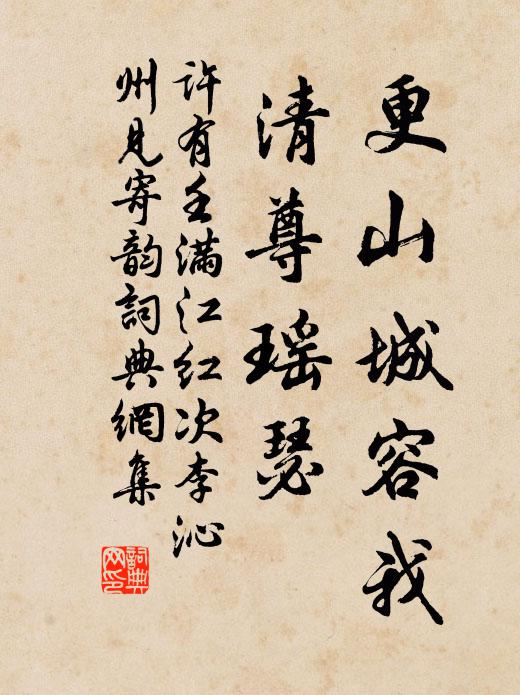 更山城容我
清尊瑶瑟
许有壬满江红次李沁
州见寄韵词典網集
詞典
网印